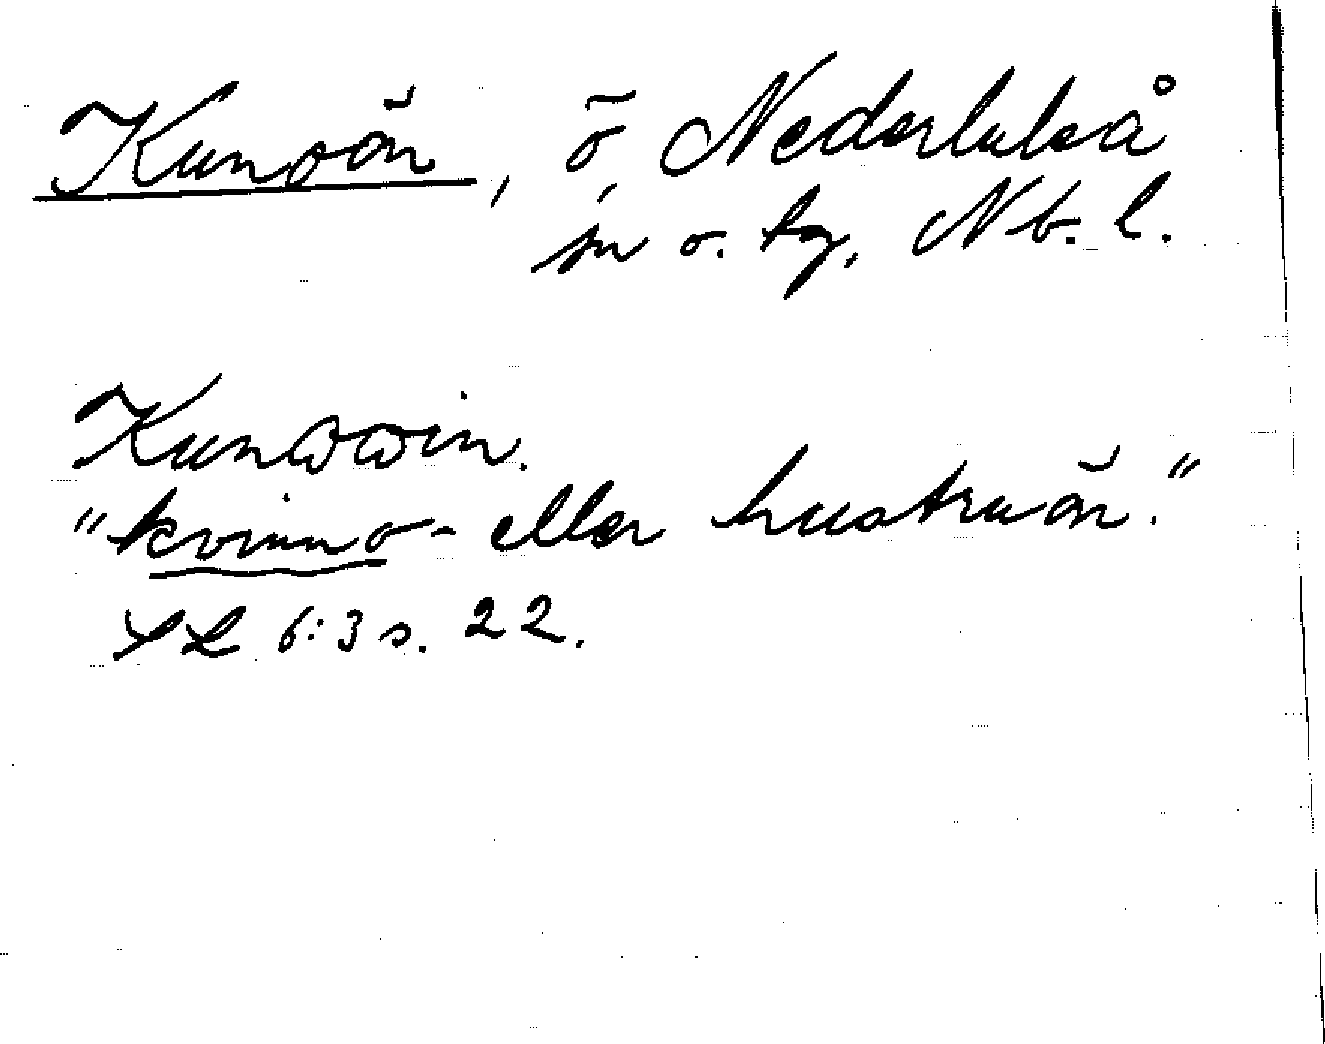 Kunoön, ö, Nederluleå
sn o. tg, Nb. l.
Kunωωin.
"kvinno- eller hustruön."
SL 6:3 s. 22.